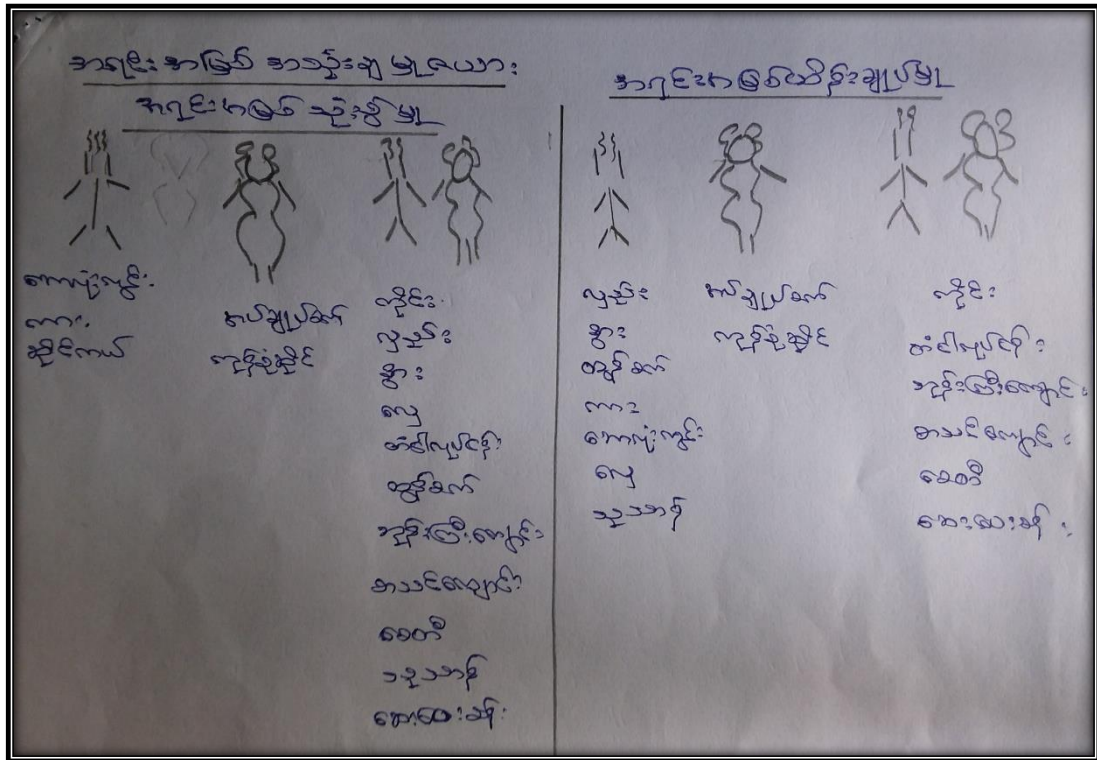 အရင်းအမြစ် အသုံးချ မှုဇယား
အရင်းအမြစ် သုံးစွဲမှု
ဘောလုံးကွင်း
ကား
ဆိုင်ကယ်
အပ်ချုပ်စက်
ကုန်စုံဆိုင်
လှိုင်း
လှည်း
နွား
လှေ
တံငါလုပ်ငန်း
ထွန်စက်
ဘုန်းကြီးကျောင်း
စာသင်ကျောင်း
စေတီ
သုသာန်
ဆေးပေးခန်း
အရင်းအမြစ်ထိန်းချုပ်မှု
လှည်း
နွား
ထွန်စက်
ကား
ဘောလုံးကွင်း
လှေ
သုသာန်
အပ်ချုပ်စက်
ကုန်စုံဆိုင်
တံငါလုပ်ငန်း
ဘုန်းကြီးကျောင်း
စာသင်ကျောင်း
စေတီ
ဆေးပေးခန်း